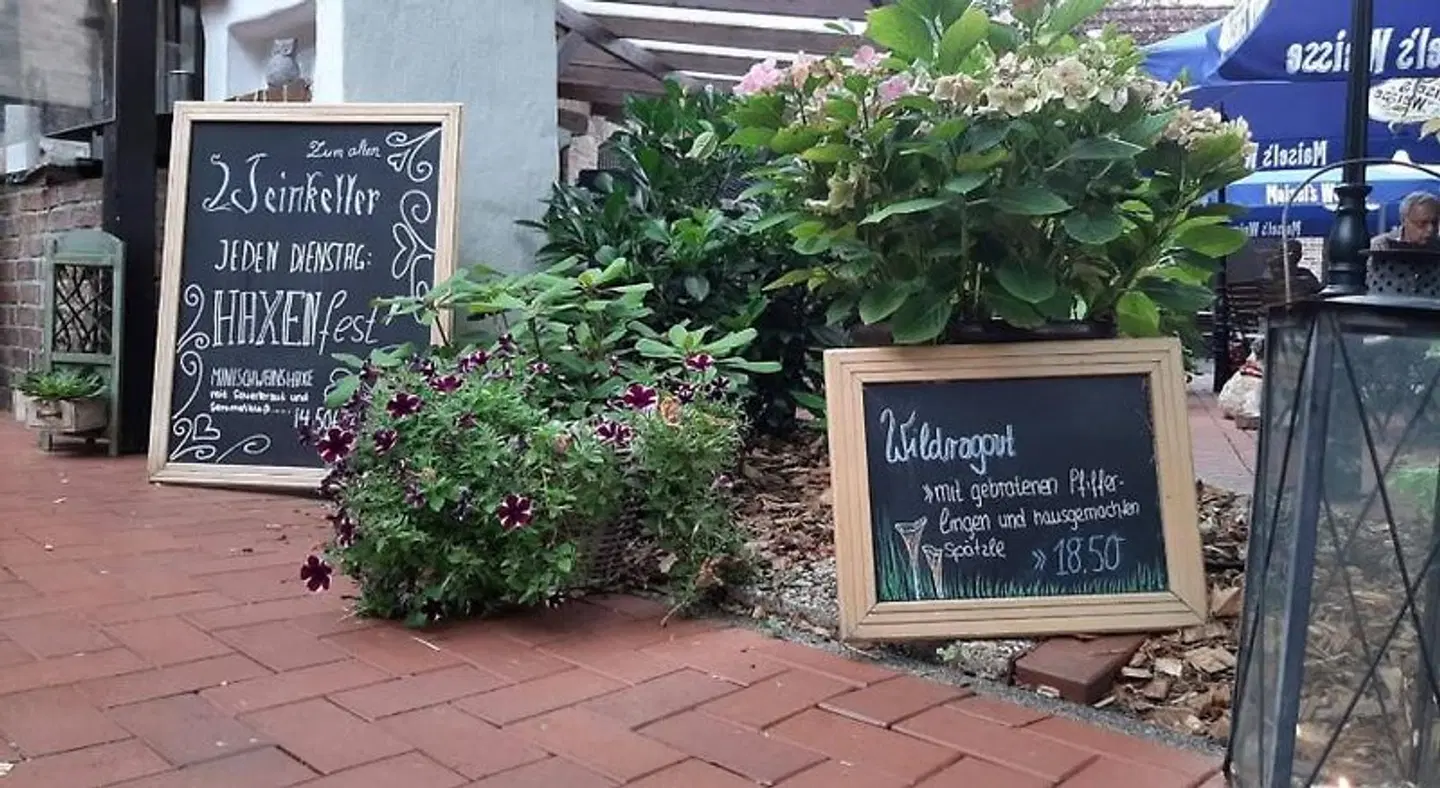 Zum alten
Weinkeller
JEDEN DIENSTAG:
HAXENfest
MINISCHWEINSHAXE
mit Sauerkraut und
Semmelkloß.....14.50€
Wildragout
»mit gebratenen Pfiffer-
lingen und hausgemachten
Spätzle »18.50
Maisel's Weisse
Maisel's
Maisel's